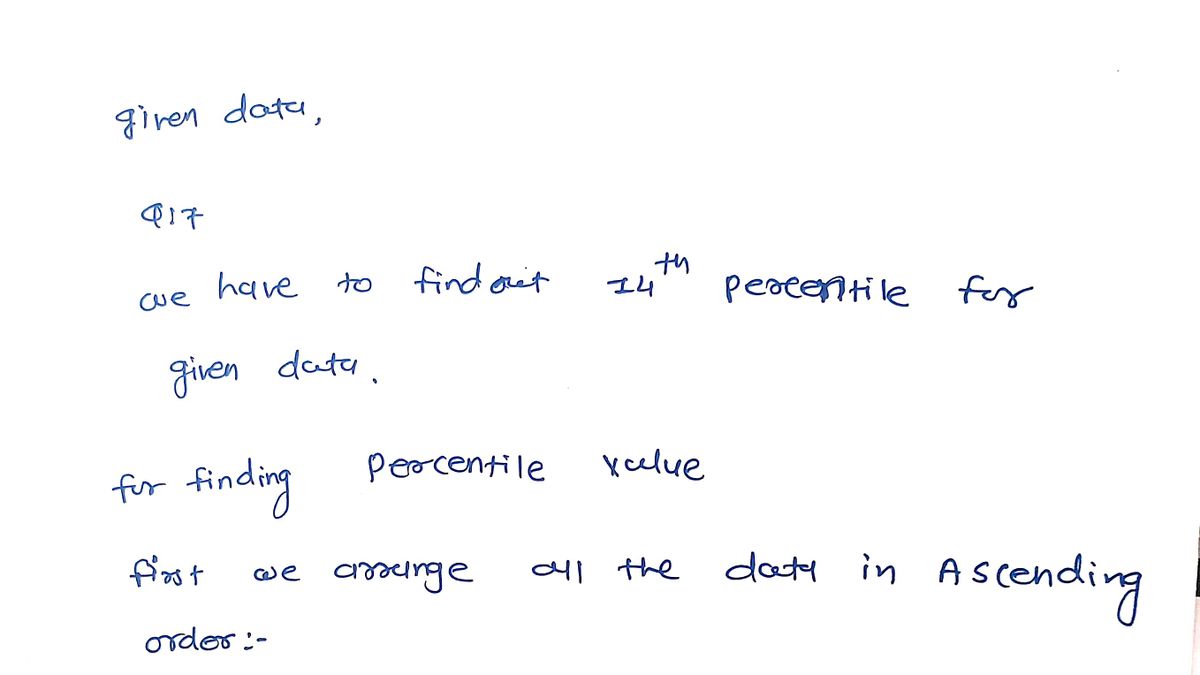 given data,
Q17
we have to find out 14th percentile for
given data.
for finding percentile value
first we arrange all the data in Ascending
order :-